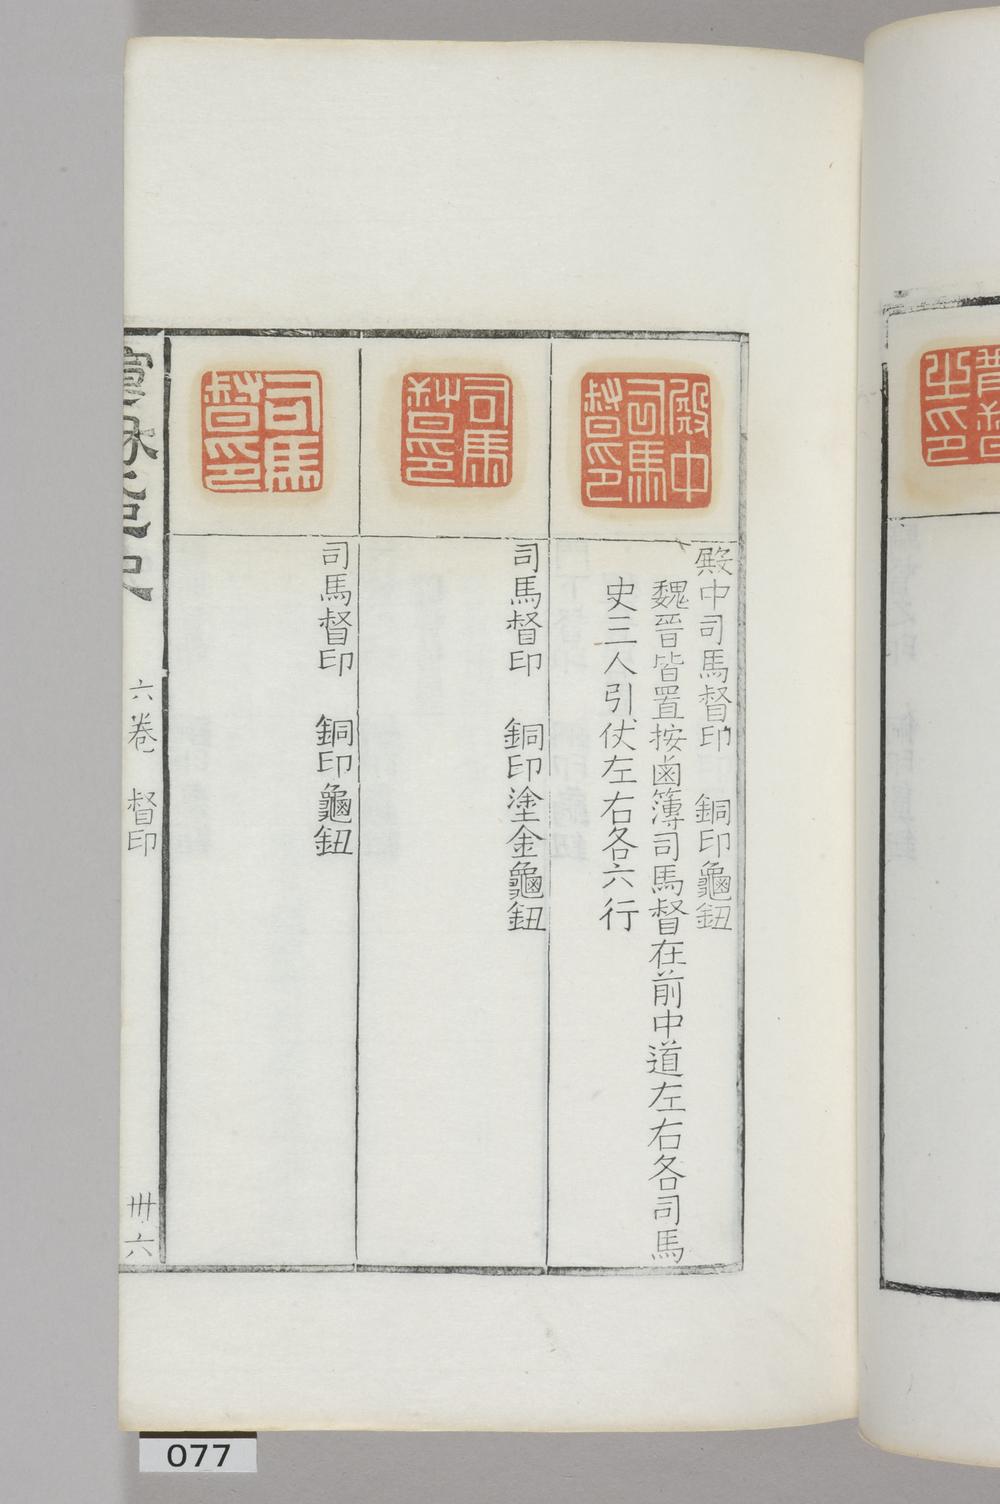 殿中司馬督印
殿中司馬督印　銅印龜鈕
魏晉皆置按鹵簿司馬督在前中道左右各司馬
史三人引仗左右各六行
司馬督印
司馬督印　銅印塗金龜鈕
司馬督印
司馬督印　銅印龜鈕
六卷　督印
卌六
077